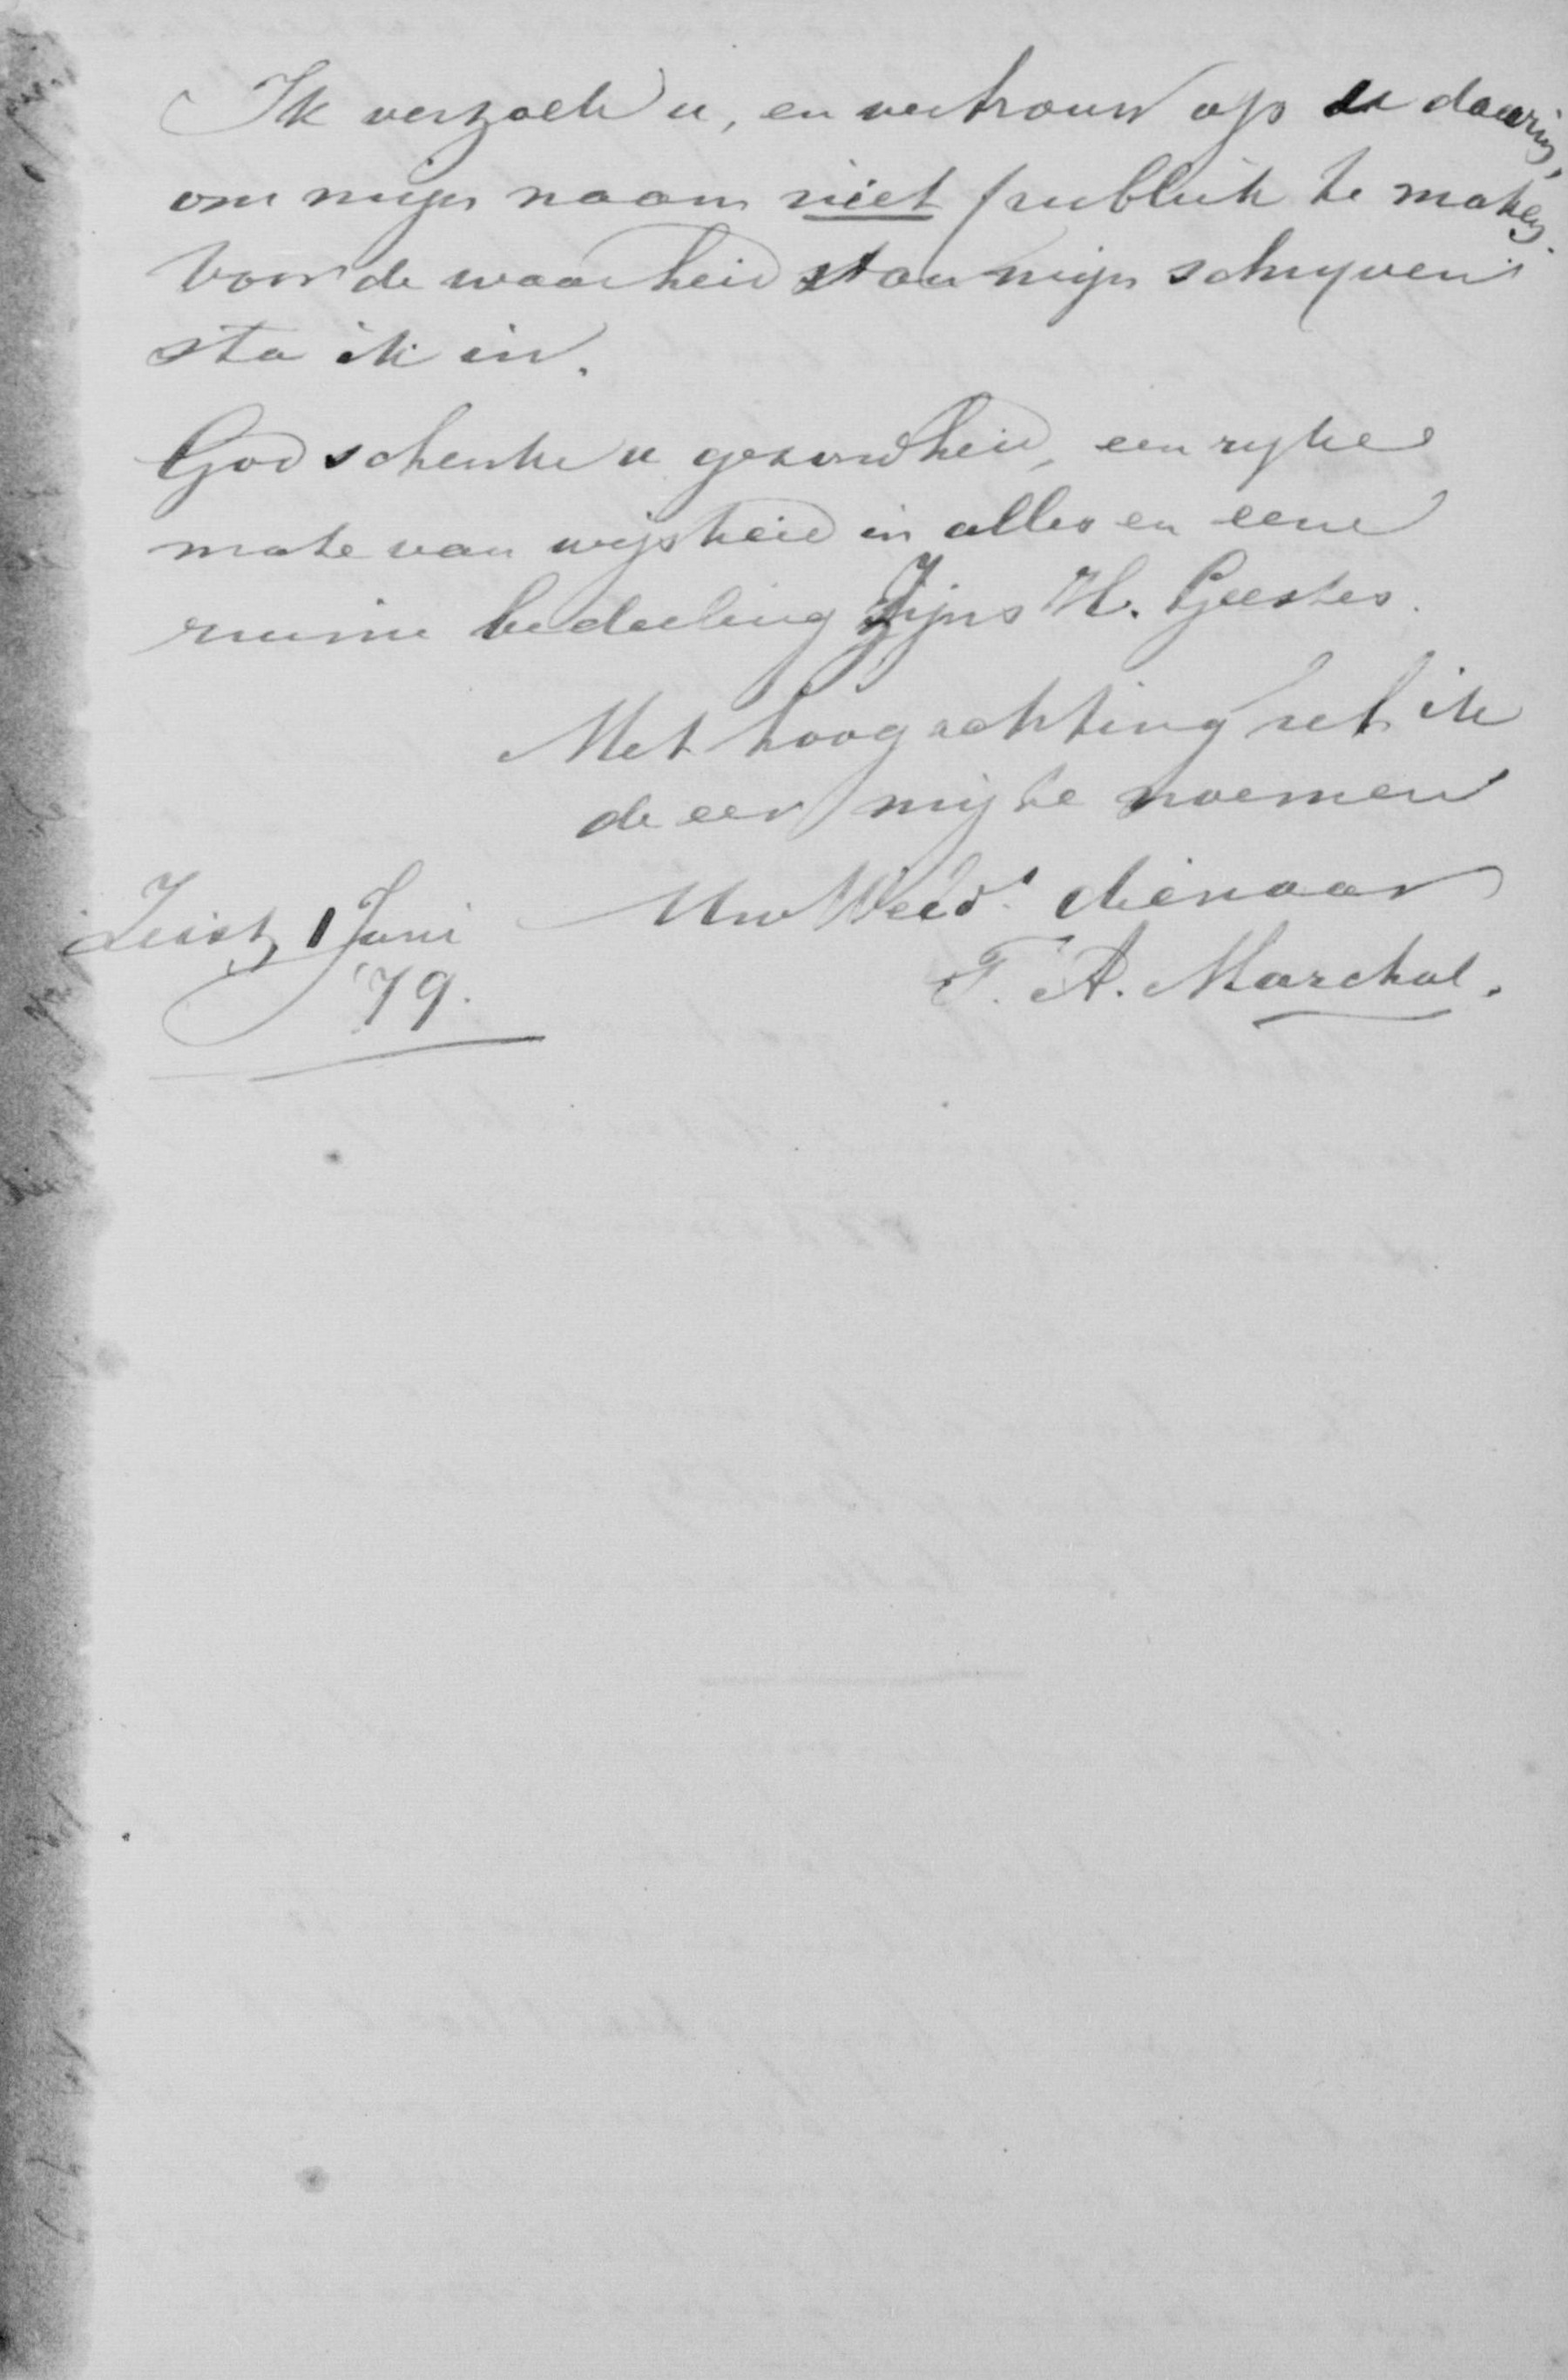 Ik verzoek u, en vertrouw op u daarin,
om mijn naam niet publiek te maken.
Voor de waarheid van mijn schryven
sta ik in.
God schenke u gezondheid, een ryke
mate van wijsheid in alles en eene
ruime bedeeling Zijns H. Geestes.
Met hoogachting heb ik
de eer mij te noemen
Uw WEerw. dienaar
Zeist, 1 Juni
'79.
F. A. Marchal.